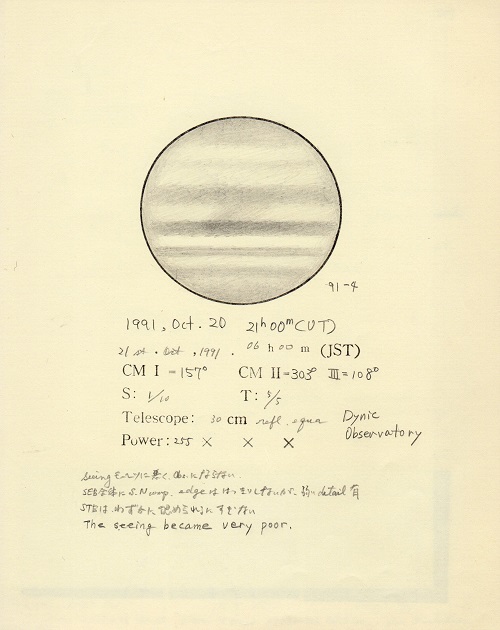 91-4
1991, Oct. 20 21h00m(UT)
21 st. Oct, 1991. 06 h 00 m (JST)
CM I =157° CM II=303° III=108°
S: 1/10 T: 3/5
Telescope: 30 cm refl. equa Dynic
Observatory
Power: 255 × × ×
seeing
SEB S. N comp. edge detail 有
STBは、わずかに認められるにすぎない
The seeing became very poor.